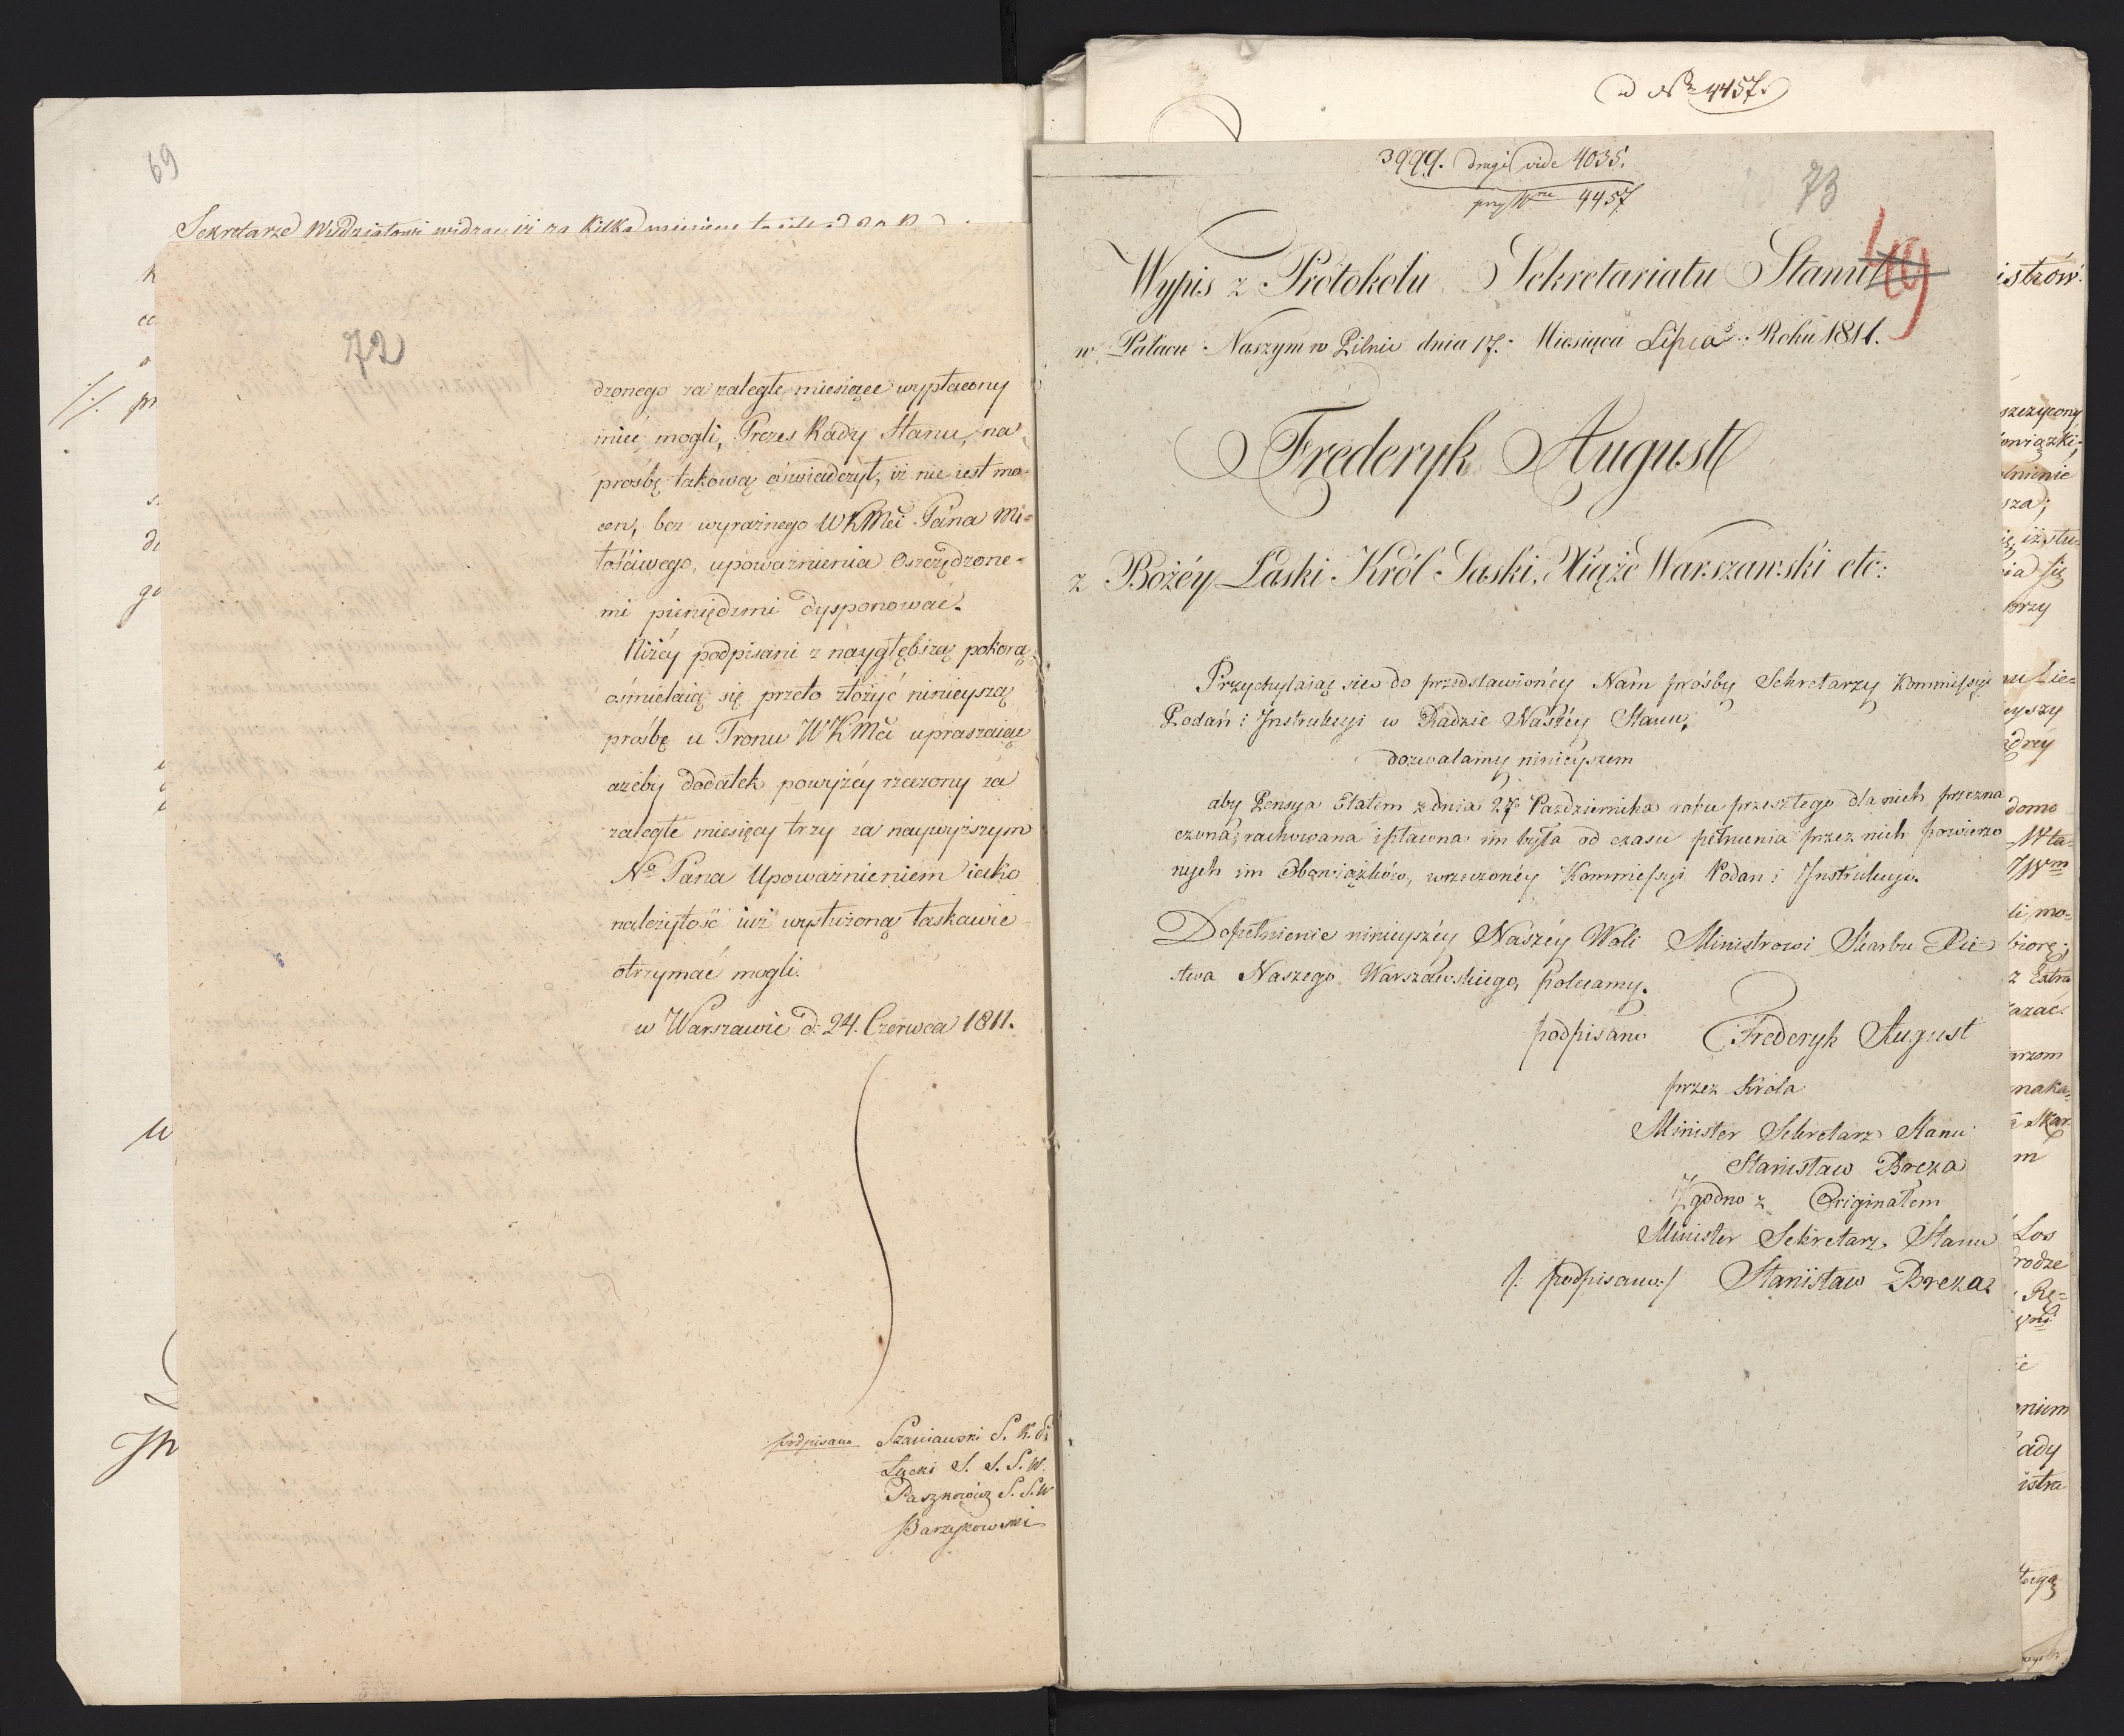 69
Sekretarze Wydziałowi widząc iż za kilka
72
dzonego za zaległe miesiące wypłacony
mieć mogli, Prezes Rady Stanu, na
prośbę takową oświadczył, iż nie iest mo-
cen, bez wyraźnego WKMci Pana Mi-
łościwego, upoważnienia oszczędzone-
mi pieniędzmi dysponować.
Niżéy podpisani z naygłębszą pokorą
ośmielaią się przeto złożyć ninieyszą
prośbę u Tronu WKMci upraszaiąc
ażeby dodatek powyżéy rzeczony za
zaległe miesięcy trzy za naywyższym
No Pana Upoważnieniem iako
należytość iuż wysłużoną łaskawie
otrzymać mogli.
w Warszawie d: 24. Czerwca 1811.
podpisano Szaniawski S. K. S.
Łącki S. S. S. W.
Paszkowicz S. S. W
Barzykowski
ad Nr 4457.
3999. drugi vide 4035.
przy Nrze 4457
73
49
Wypis z Protokołu Sekretariatu Stanu
w Pałacu Naszym w Pilnic dnia 17. Miesiąca Lipca Roku 1811.
Frederyk August
z Bożéy Łaski Król Saski, Xiąże Warszawski etc:
Przychylaiąc sie do przedstawionéy Nam prośby Sekretarzy Kommissyi
Podań i Instrukcyi w Radzie Naszéy Stanu,
dozwalamy ninieyszem
aby Pensya Etatem z dnia 27 Pazdziernika roku przeszłego dla nich przezna
czona, rachowana i płacona im była od czasu pełnienia przez nich powierzo
nych im Obowiązków, w rzeczonéy Kommissyi Podań i Instrukcyi.
Dopełnienie ninieyszéy Naszéy Woli Ministrowi Skarbu Xię
stwa Naszego Warszawskiego, polecamy.
podpisano Frederyk August
przez Króla
Minister Sekretarz Stanu
Stanisław Breza
Zgodno z Originałem
Minister Sekretarz Stanu
/: podpisano :/ Stanisław Breza